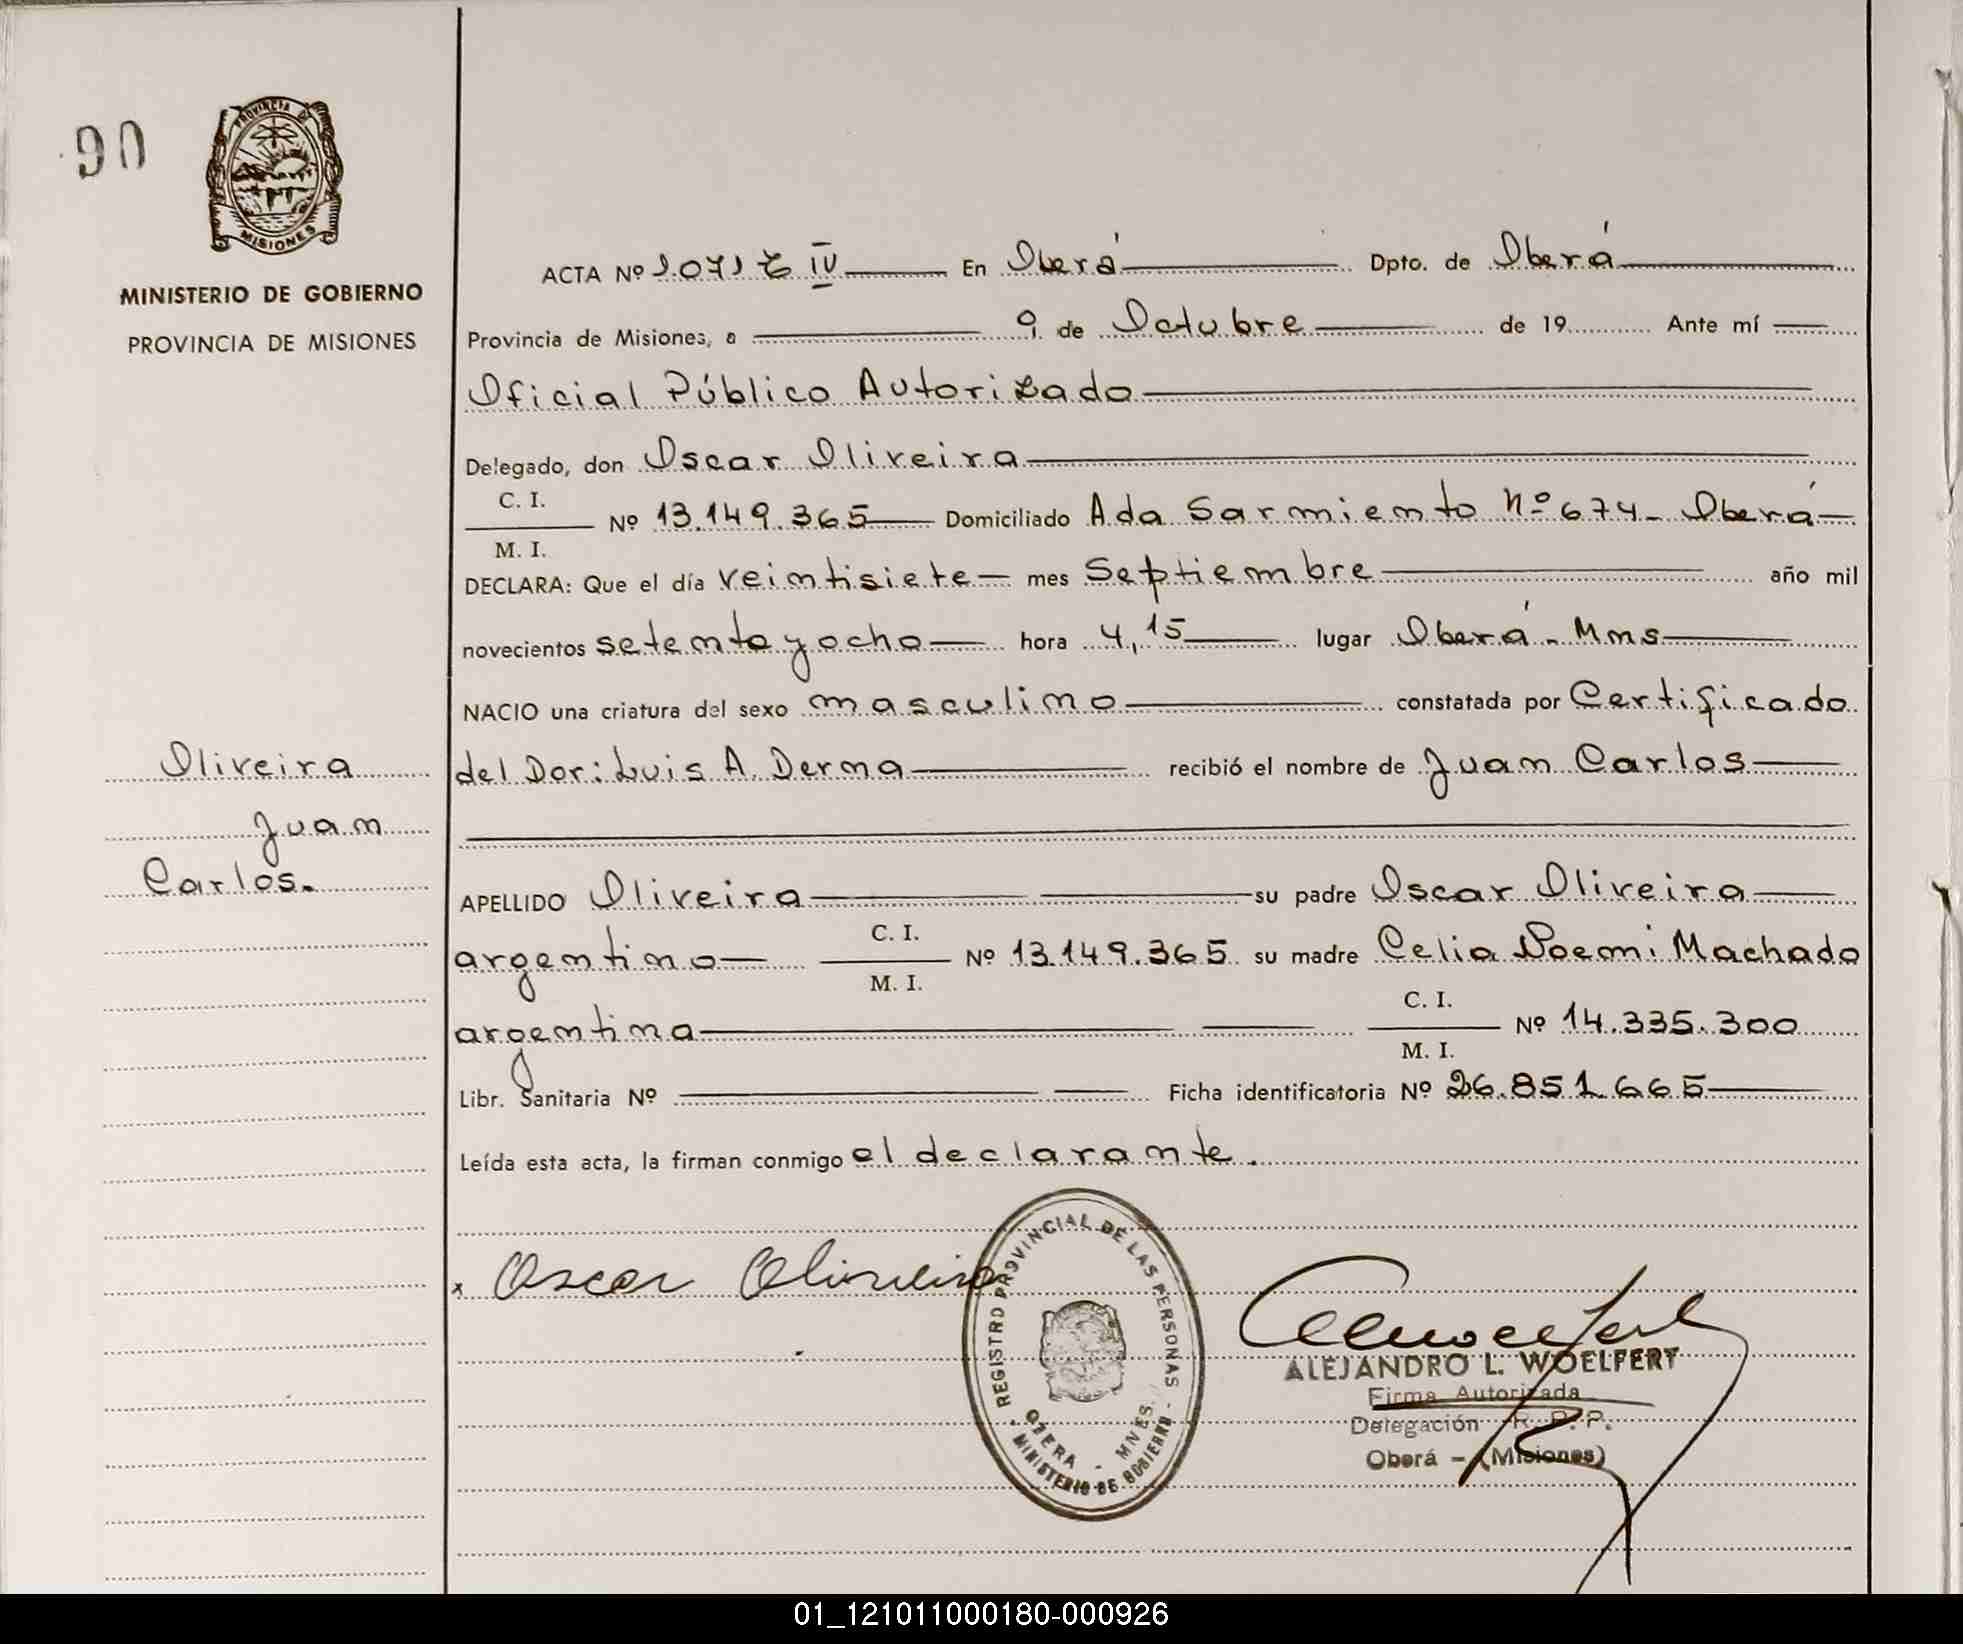 90
PROVINCIA DE
MISIONES
MINISTERIO DE GOBIERNO
PROVINCIA DE MISIONES
Oliveira
Juan
Carlos.
ACTA Nº 1.071 T IV En Oberá Dpto. de Oberá
Provincia de Misiones, a 9 de Octubre de 19 Ante mí
Oficial Público Autorizado
Delegado, don Oscar Oliveira
C. I.
M. I. Nº 13.149.365 Domiciliado Ada Sarmiento Nº 674 - Oberá
DECLARA: Que el día veintisiete mes Septiembre año mil
novecientos setenta y ocho hora 4,15 lugar Oberá - Mnes
NACIO una criatura del sexo masculino constatada por Certificado
del Dor: Luis A. Derna recibió el nombre de Juan Carlos
APELLIDO Oliveira su padre Oscar Oliveira
argentino C. I. M. I. Nº 13.149.365 su madre Celia Noemi Machado
argentina C. I. M. I. Nº 14.335.300
Libr. Sanitaria Nº Ficha identificatoria Nº 26.851.665
Leída esta acta, la firman conmigo el declarante.
x Oscar Oliveira
REGISTRO PROVINCIAL DE LAS PERSONAS
OBERA - MNES.
- MINISTERIO DE GOBIERNO -
ALEJANDRO L. WOELFERT
Firma Autorizada
Delegación R. P. P.
Oberá - (Misiones)
01_121011000180-000926